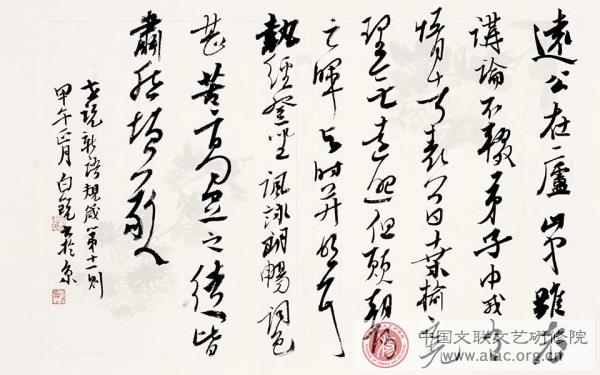 遠公在廬山中雖老
講論不輟弟子中或有
惰者遠公曰桑榆之光
理无遠照但願朝陽
之暉与时并明耳
執經登坐諷詠朗暢詞色
甚苦高足之徒皆
肅然增敬
世說新語規箴第十一則
甲午正月白锐书於京
中国文联文艺研修院
www.alac.org.cn